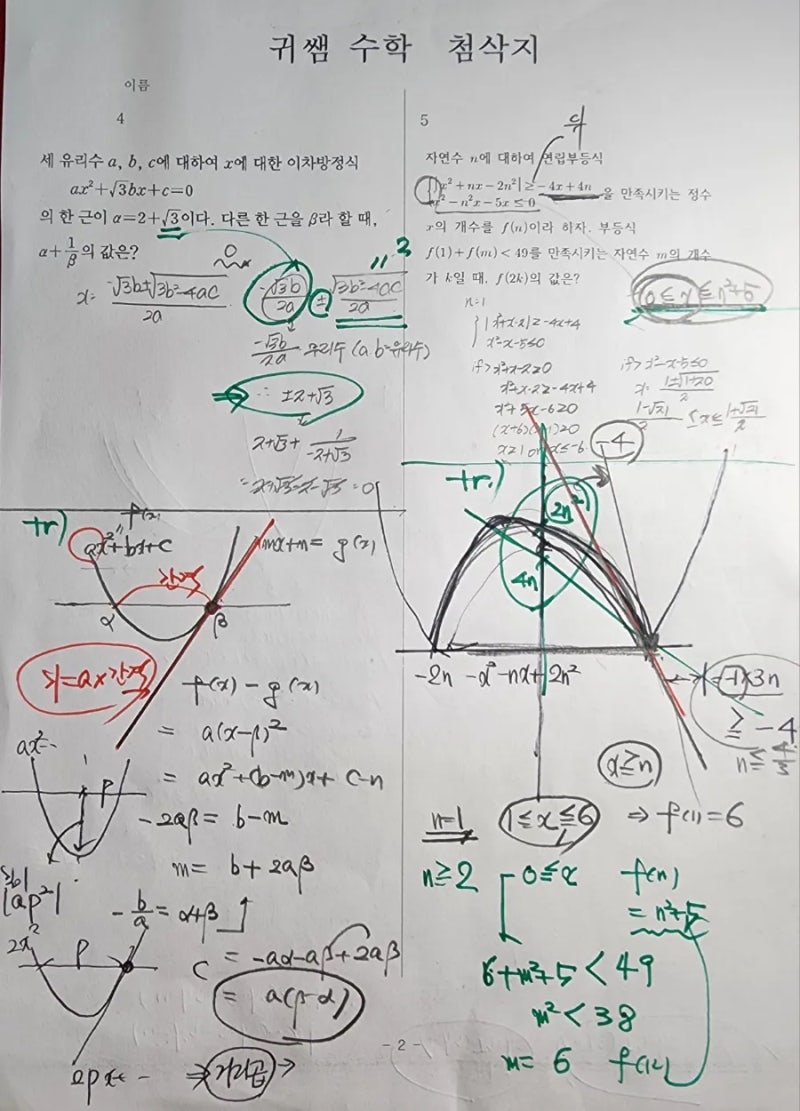 귀쌤 수학 첨삭지
이름
4
세 유리수 a, b, c에 대하여 x에 대한 이차방정식
ax²+√3bx+c=0
의 한 근이 α=2+√3이다. 다른 한 근을 β라 할 때,
α+1/β의 값은?
x= (-√3b±√3b²-4ac)/2a
-√3b/2a ± √3b²-4ac/2a
-√3b/2a 무리수 (a,b=유리수)
∴ ±2+√3
2+√3 + 1/(-2+√3)
=0
f(x)
ax²+bx+c
mx+n = g(x)
간격
α
β
차=a×간격
f(x) - g(x)
= a(x-β)²
= ax²+(b-m)x+c-n
-2aβ = b-m
m= b+2aβ
ax²
p
|ap²|
-b/a = α+β
= -aα-aβ+2aβ
= a(β-α)
2x²
p
2px+-
⇒ 거리곱 →
5
자연수 n에 대하여 연립부등식
|x²+nx-2n²|≥-4x+4n
x²-n²x-5x≤0
을 만족시키는 정수
x의 개수를 f(n)이라 하자. 부등식
f(1)+f(m)<49를 만족시키는 자연수 m의 개수
가 k일 때, f(2k)의 값은?
0≤x≤n²+5
n=1
|x²+x-2|≥-4x+4
x²-x-5≤0
if> x²+x-2≥0
x²+x-2≥-4x+4
x²+5x-6≥0
(x+6)(x-1)≥0
x≥1 or x≤-6
if> x²-x-5≤0
x= (1±√1+20)/2
(1-√21)/2 ≤x≤ (1+√21)/2
-4
+r.)
2n²
4n
-2n
-x²-nx+2n²
(-1)×3n
≥-4
n≤4/3
x≥n
n=1
1≤x≤6
⇒ f(1)=6
n≥2
0≤x
f(n)
= n²+5
6+m²+5<49
m²<38
m= 6
f(12)
- 2 -